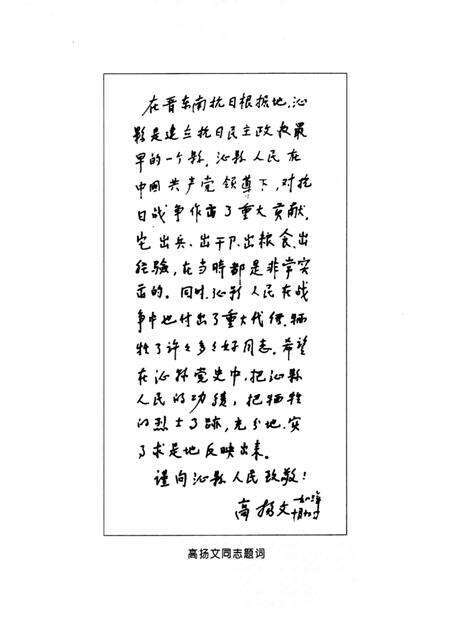 在晋东南抗日根据地，沁
县是建立抗日民主政权最
早的一个县。沁县人民在
中国共产党领导下，对抗
日战争作出了重大贡献，
它出兵、出干卩、出粮食、出
经验，在当時都是非常突
出的。同时，沁县人民在战
争中也付出了重大代价，牺
牲了许许多多好同志。希望
在沁县党史中，把沁县
人民的功绩，把牺牲
的烈士事跡，充分地、实
事求是地反映出来。
谨向沁县人民致敬！
高扬文
高扬文同志题词